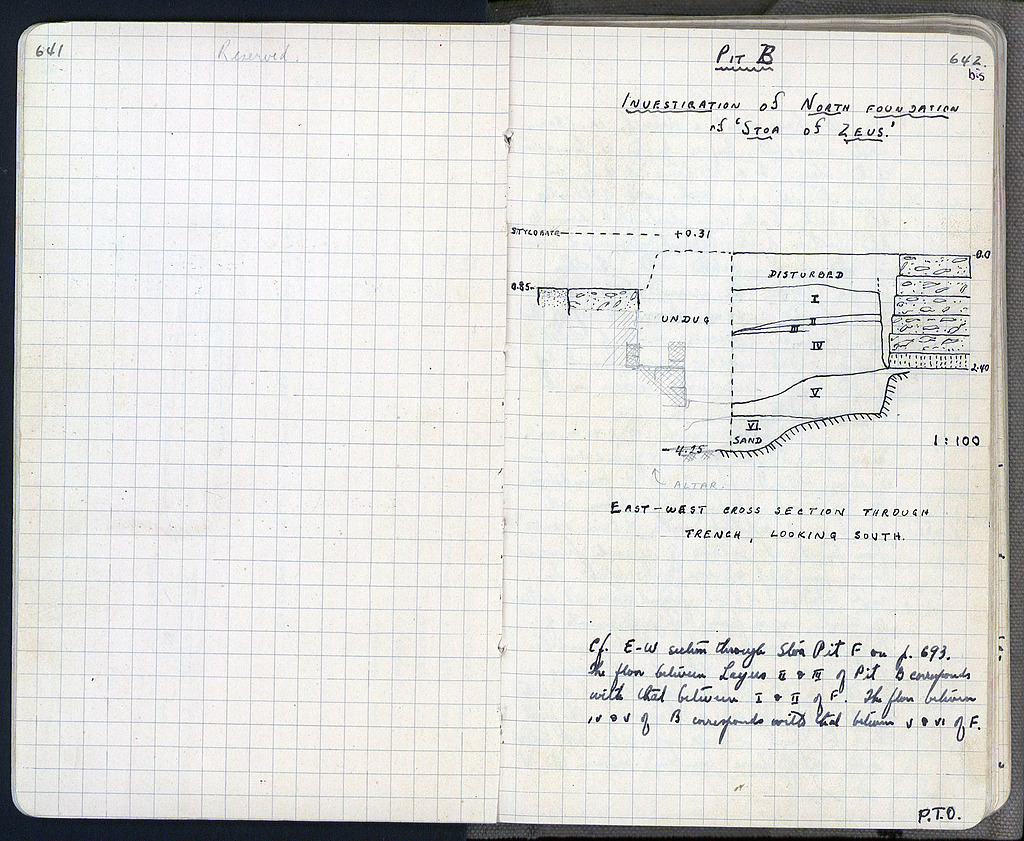 641
Reserved.
642.
bis
PIT B
INVESTIGATION of NORTH FOUNDATION
of 'STOA of ZEUS.'
STYLOBATE +0.31
0.0
DISTURBED
0.85
I
II
UNDUG
III
IV
2.40
V
VI.
SAND
1:100
4.25
ALTAR.
EAST-WEST CROSS SECTION THROUGH
TRENCH, LOOKING SOUTH.
Cf. E-W section through Stoa Pit F on p. 693.
The floor between Layers II & III of Pit B corresponds
with that between I & II of F. The floor between
IV & V of B corresponds with that between V & VI of F.
P.T.O.